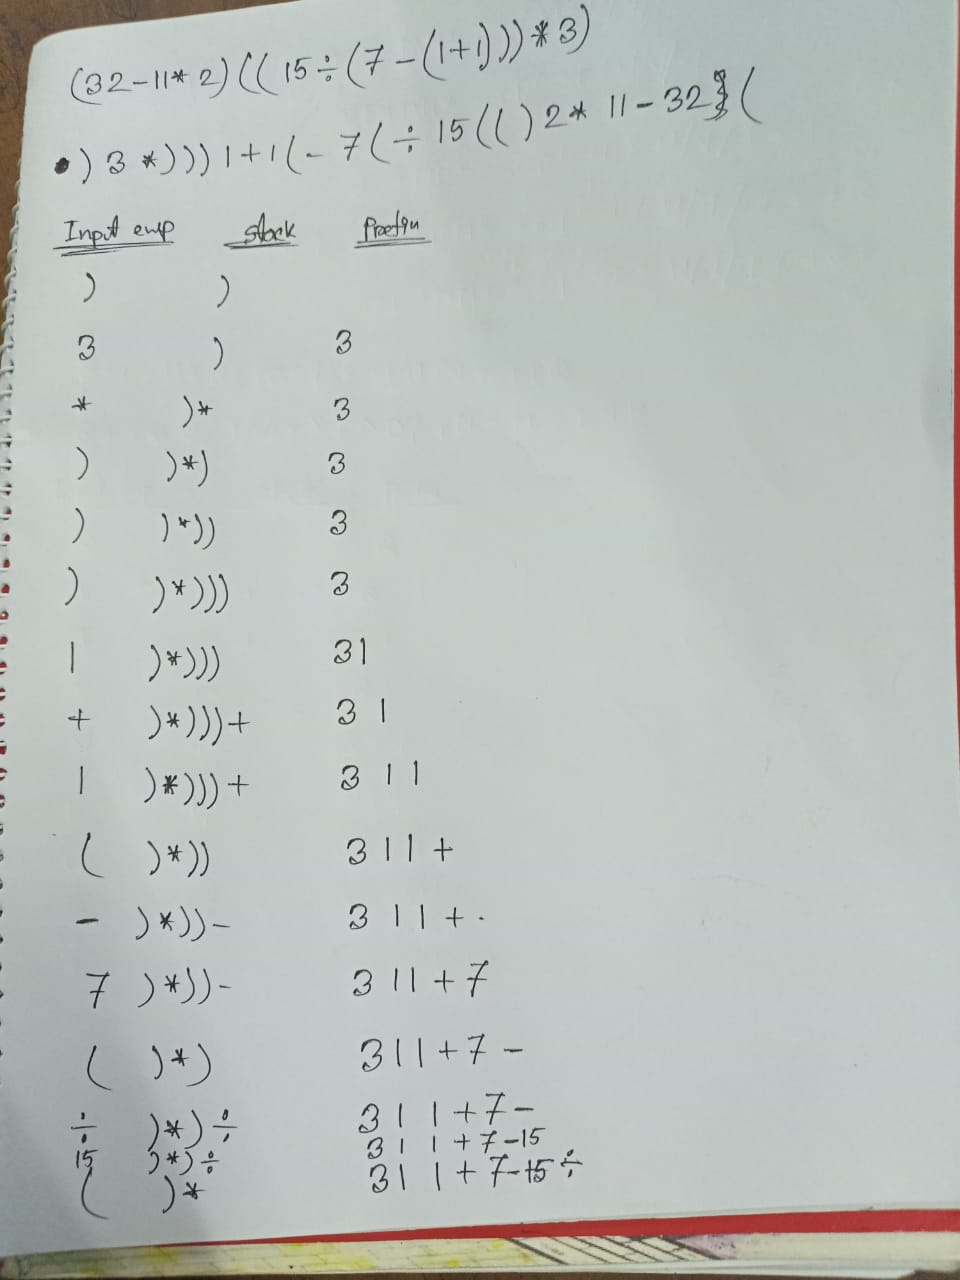 (32-11*2)((15÷(7-(1+1)))*3)
)3*)))1+1(-7(÷15(()2*11-32}(
Input exp stack Prefix
) )
3 ) 3
* )* 3
) )*) 3
) )*)) 3
) )*))) 3
1 )*))) 31
+ )*)))+ 3 1
1 )*)))+ 3 1 1
( )*)) 3 1 1 +
- )*))- 3 1 1 + .
7 )*))- 3 1 1 + 7
( )*) 3 1 1 + 7 -
÷ )*)÷ 3 1 1 + 7 -
15 )*)÷ 3 1 1 + 7 - 15
( )* 3 1 1 + 7 - 15 ÷